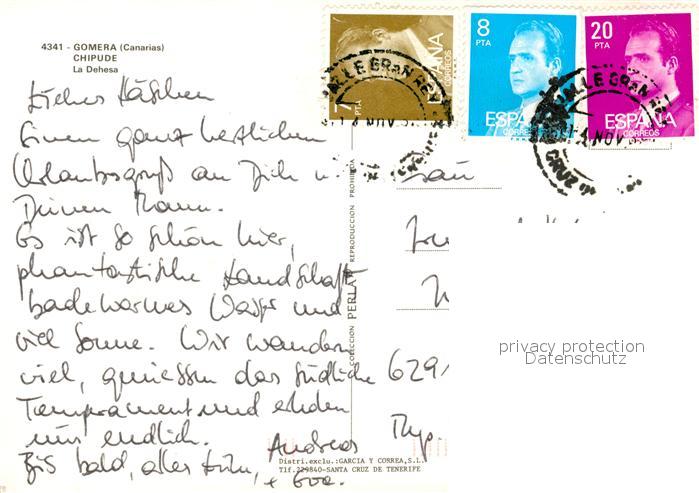 4341 - GOMERA (Canarias)
CHIPUDE
La Dehesa
Liebes Häschen
Einen ganz herzlichen
Urlaubsgruß an Dich u.
Deinen Mann.
Es ist so schön hier,
phantastische Landschaft
badewarmes Wasser und
viel Sonne. Wir wandern
viel, geniessen das südliche
Temperament und
uns endlich.
Bis bald, alles Liebe,
Andreas
+ Eva.
COLECCION PERLA
REPRODUCCION PROHIBIDA
Distri.exclu.:GARCIA Y CORREA,S.L.
Tlf.229840-SANTA CRUZ DE TENERIFE
7 PTA
ESPAÑA
CORREOS
8 PTA
ESPAÑA
CORREOS
20 PTA
ESPAÑA
CORREOS
VALLE GRAN REY
NOV
VALLE GRAN REY
NOV
CRUZ
629
privacy protection
Datenschutz